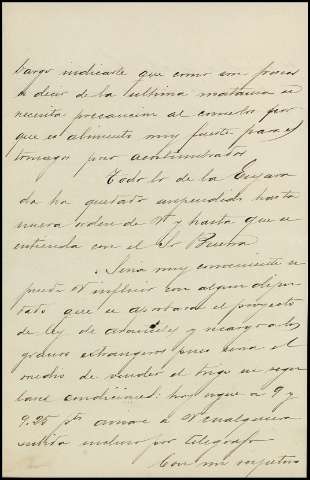 bargo indicarle que como son frescos
a decir de la ultima matanza se
necesita precaucion al comerlos por
que es alimento muy fuerte para el
tomago poco acostumbrados
Todo lo de la
da ha quedado suspendido hasta
nueva orden de V y hasta que se
entienda con el Sr
Seria muy conveniente si
puede V influir con algun dipu
tado que se aprobara el proyecto
de ley de aranceles y recargo a los
granos extrangeros pues sería el
medio de vender el trigo en regu
lares condiciones: hoy sigue a 9 y
9.25 pts avise a V cualquiera
subida incluso por telegrafo
Con mis respetos